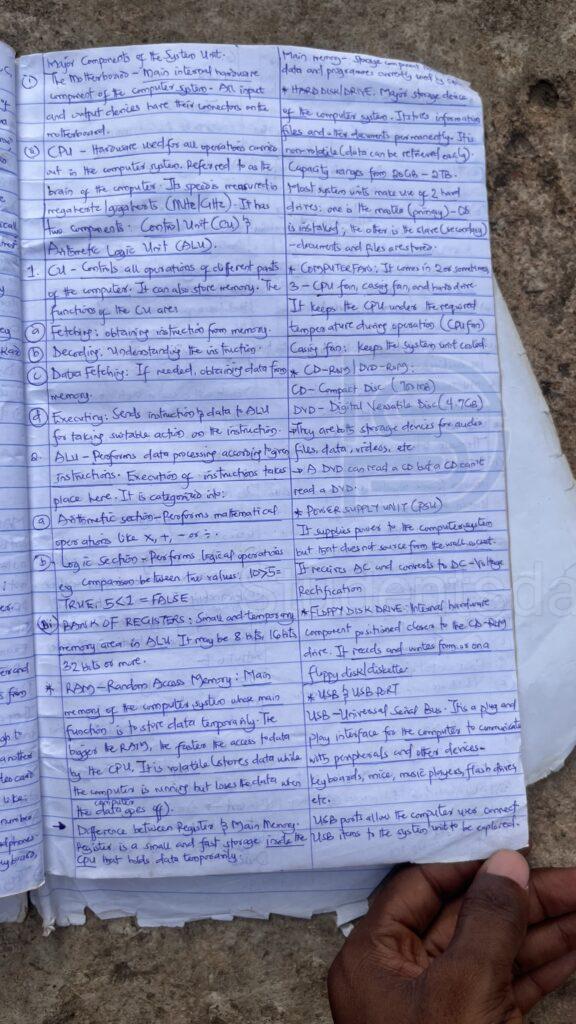 Major Components of the System Unit.
(i) The Motherboard - Main internal hardware
component of the computer system - All input
and output devices have their connectors on the
motherboard.
(ii) CPU - Hardware used for all operations carried
out in the computer system. Referred to as the
brain of the computer. Its speed is measured in
megahertz/gigahertz (MHz/GHz). It has
two components: Control Unit (CU) &
Arithmetic Logic Unit (ALU).
1. CU - Controls all operations of different parts
of the computer. It can also store memory. The
functions of the CU are:
(a) Fetching: obtaining instruction from memory.
(b) Decoding: Understanding the instruction.
(c) Data Fetching: If needed, obtaining data from
memory.
(d) Executing: Sends instruction & data to ALU
for taking suitable action on the instruction.
2. ALU - Performs data processing according to given
instructions. Execution of instructions takes
place here. It is categorized into:
(a) Arithmetic section - Performs mathematical
operations like x, +, - or ÷.
(b) Logic Section - Performs logical operations
eg comparison between two values. 10>5=
TRUE; 5<1 = FALSE
(iii) BANK OF REGISTERS: Small and temporary
memory area in ALU. It may be 8 bits, 16 bits
32 bits or more.
* RAM - Random Access Memory: Main
memory of the computer system whose main
function is to store data temporarily. The
bigger the RAM, the faster the access to data
by the CPU. It is volatile (stores data while
the computer is running but loses the data when
the computer goes off).
→ Difference between Register & Main Memory.
Register is a small and fast storage inside the
CPU that holds data temporarily.
Main memory - Storage component
data and programmes currently used by
* HARD DISK/DRIVE: Major storage device
of the computer system. It stores information
files and other documents permanently. It is
non-volatile (data can be retrieved easily).
Capacity ranges from 20GB - 2TB.
Most system units make use of 2 hard
drives: one is the master (primary) - OS
is installed; the other is the slave (secondary)
- documents and files are stored.
* COMPUTER FANS: It comes in 2 or sometimes
3 - CPU fan, casing fan, and hard drive.
It keeps the CPU under the required
temperature during operation (CPU fan)
Casing fan: keeps the system unit cooled.
* CD-ROM/DVD-ROM:
CD - Compact Disc (700MB)
DVD - Digital Versatile Disc (4.7GB)
→ They are both storage devices for audio
files, data, videos, etc
→ A DVD can read a CD but a CD can't
read a DVD.
* POWER SUPPLY UNIT (PSU)
It supplies power to the computer system
but that does not source from the wall socket.
It requires AC and converts to DC - Voltage
Rectification
* FLOPPY DISK DRIVE: Internal hardware
component positioned closer to the CD-ROM
drive. It reads and writes from or on a
floppy disk/diskette
* USB & USB PORT
USB - Universal Serial Bus. It is a plug and
play interface for the computer to communicate
with peripherals and other devices -
keyboards, mice, music players, flash drives,
etc.
USB ports allow the computer user connect
USB items to the system unit to be explored.